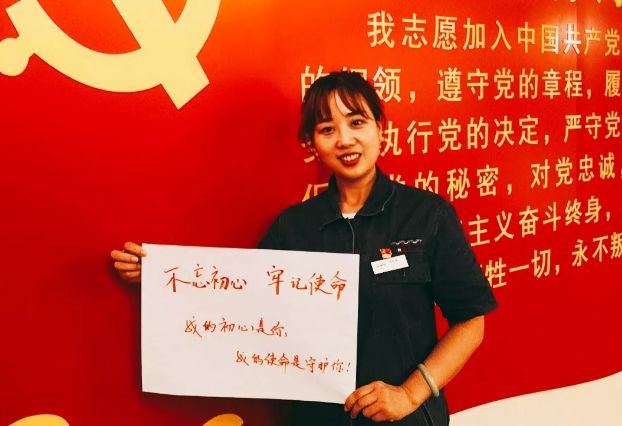 我志愿加入中国共产党
的纲领，遵守党的章程，履
执行党的决定，严守党
的秘密，对党忠诚，
主义奋斗终身，
牲一切，永不叛
不忘初心 牢记使命
我的初心是你，
我的使命是守护你！